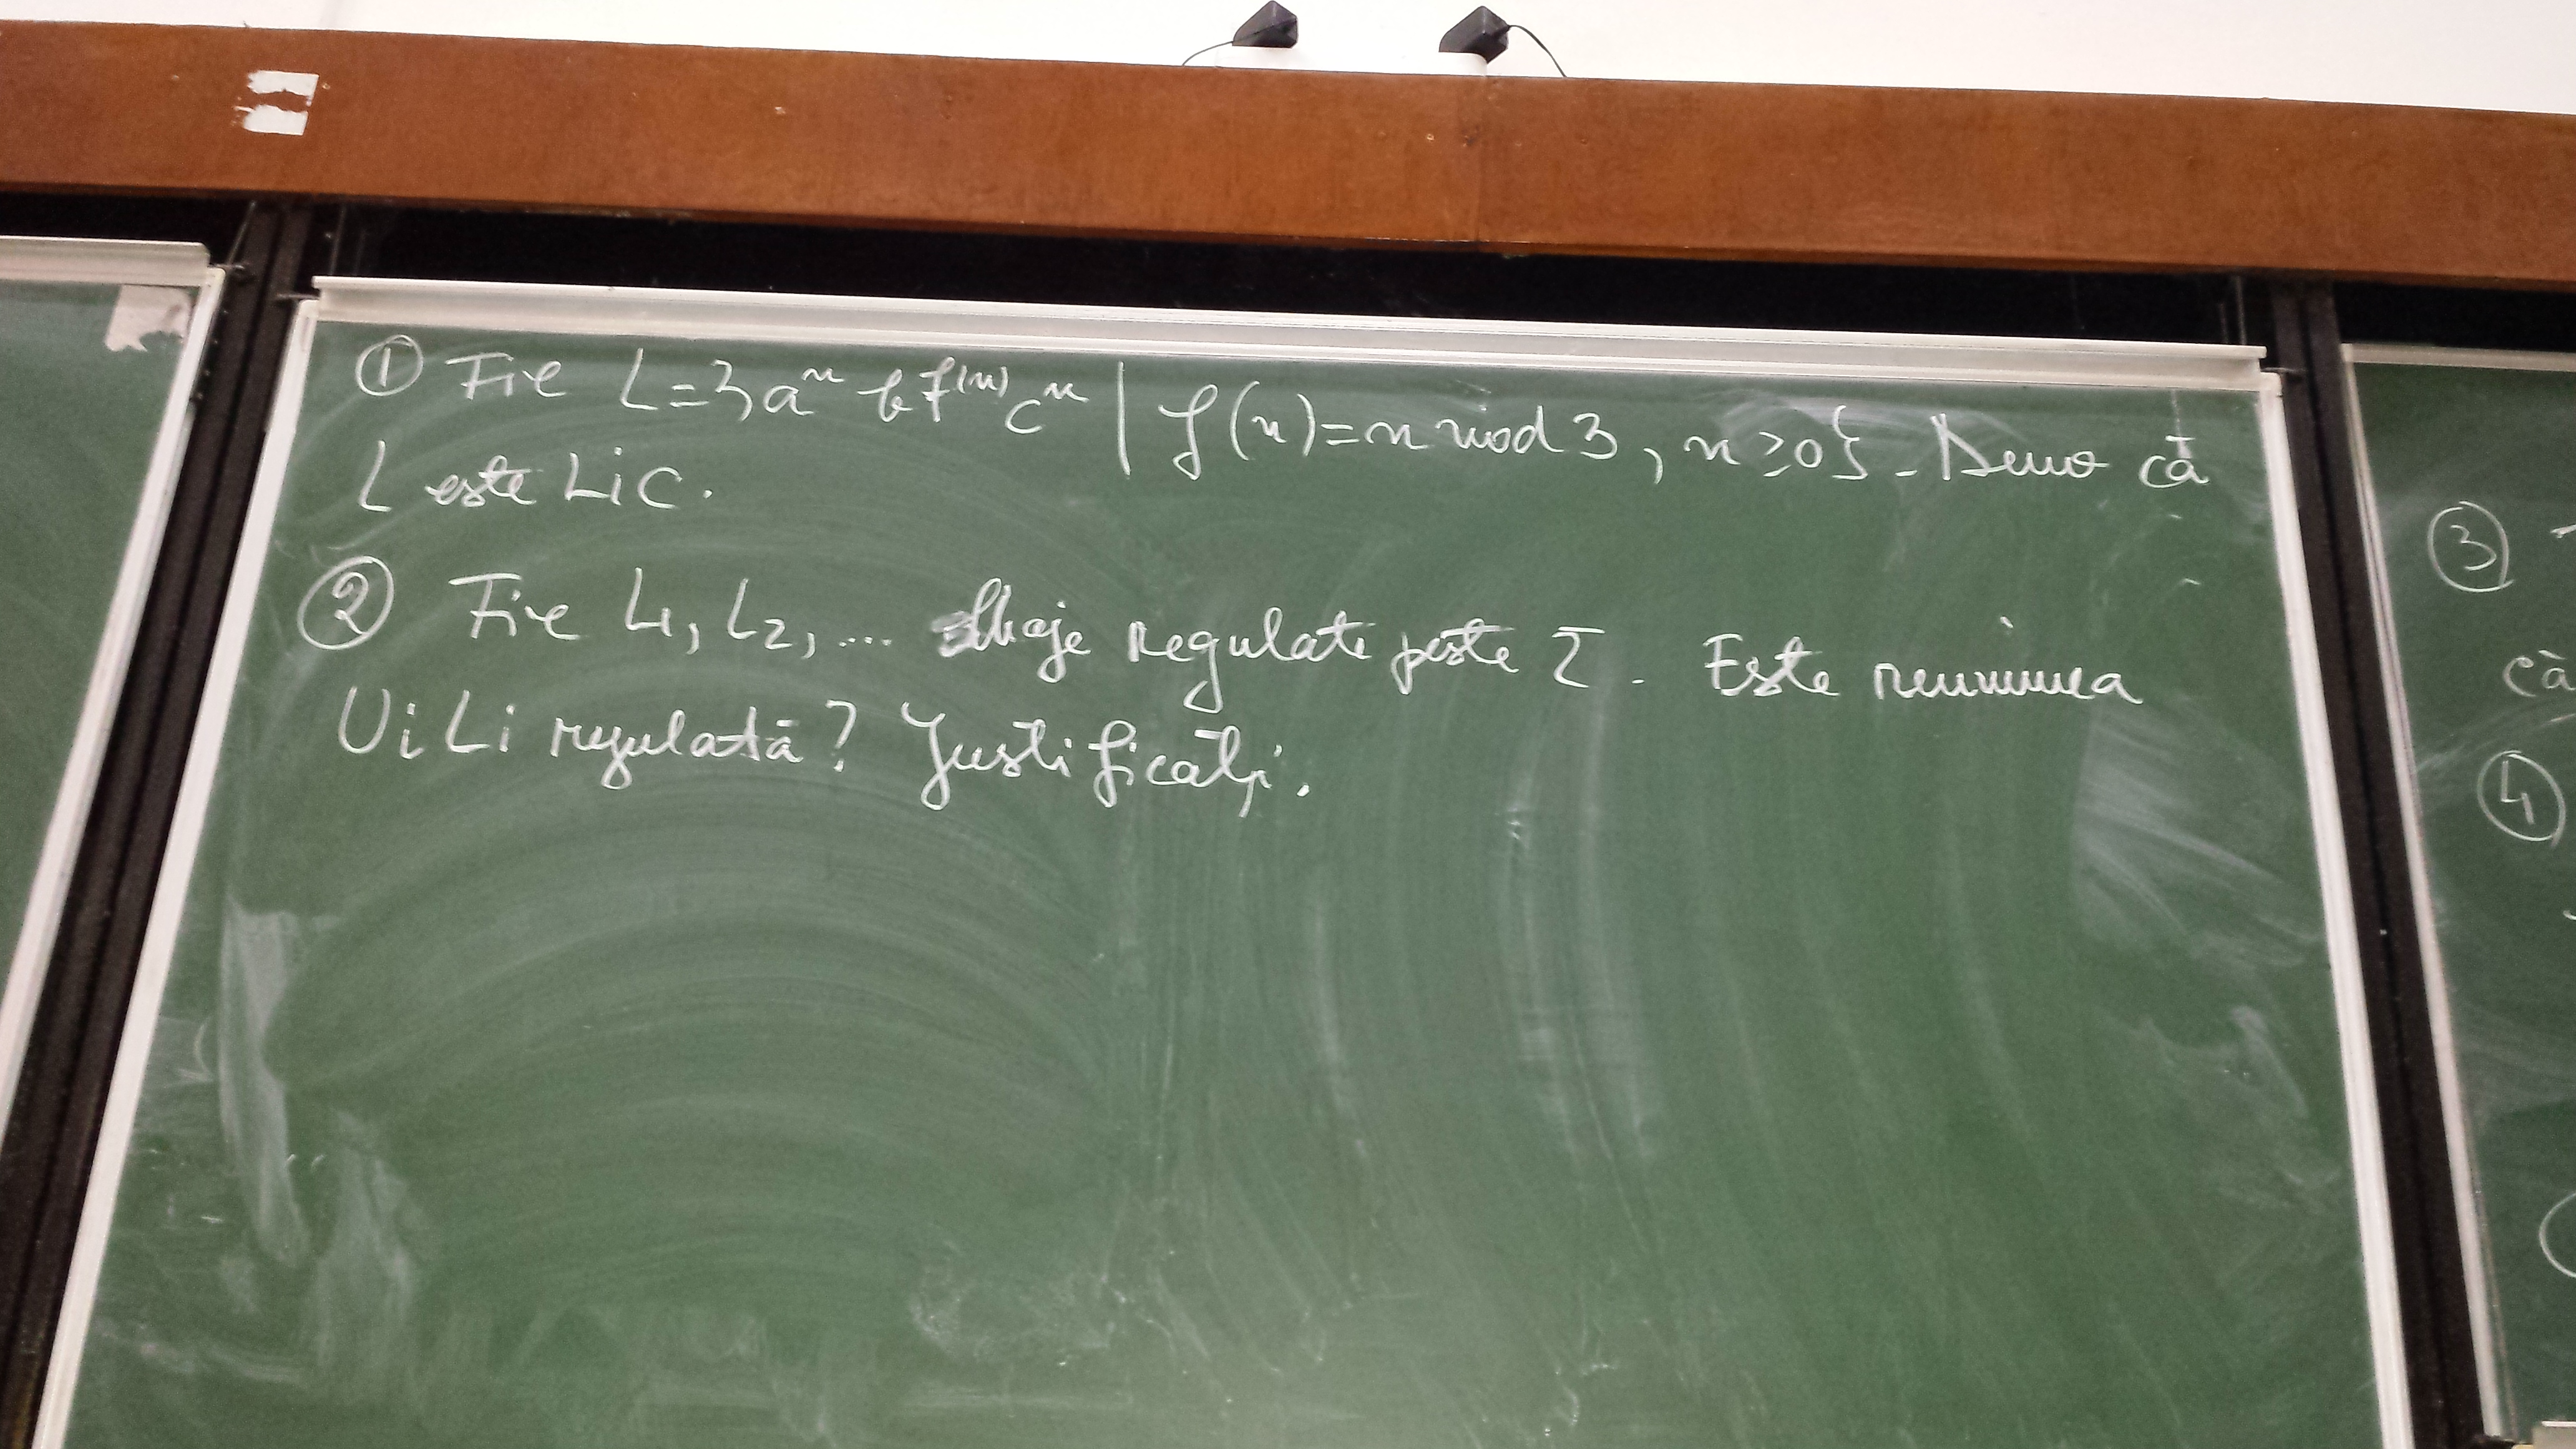 ① Fie L={aⁿ b^f(n) cⁿ | f(n)=n mod 3, n≥0}. Demo că
L este LIC.
② Fie L1, L2, ... regulate peste Σ. Este reuniunea
∪i Li regulată? Justificați.
③
că
④